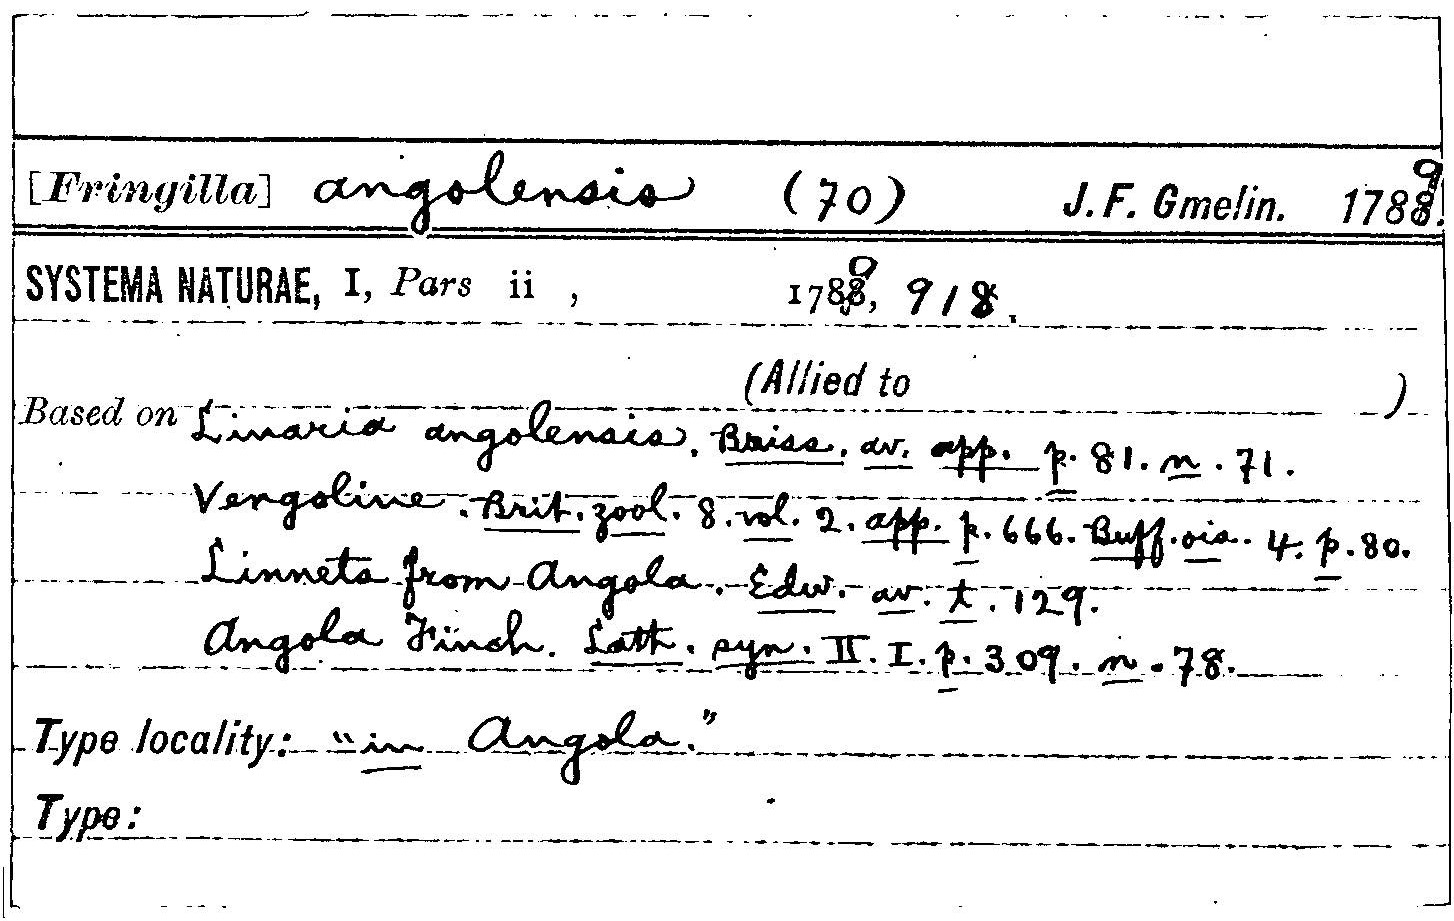 [Fringilla] angolensis (70) J. F. Gmelin. 1789.
SYSTEMA NATURAE, I, Pars ii , 1789, 918.
(Allied to )
Based on Linaria angolensis. Briss. av. app. p. 81. n. 71.
Vengoline. Brit. zool. 8. vol. 2. app. p. 666. Buff. ois. 4. p. 80.
Linnets from Angola. Edw. av. t. 129.
Angola Finch. Lath. syn. II. I. p. 309. n. 78.
Type locality: "in Angola."
Type: